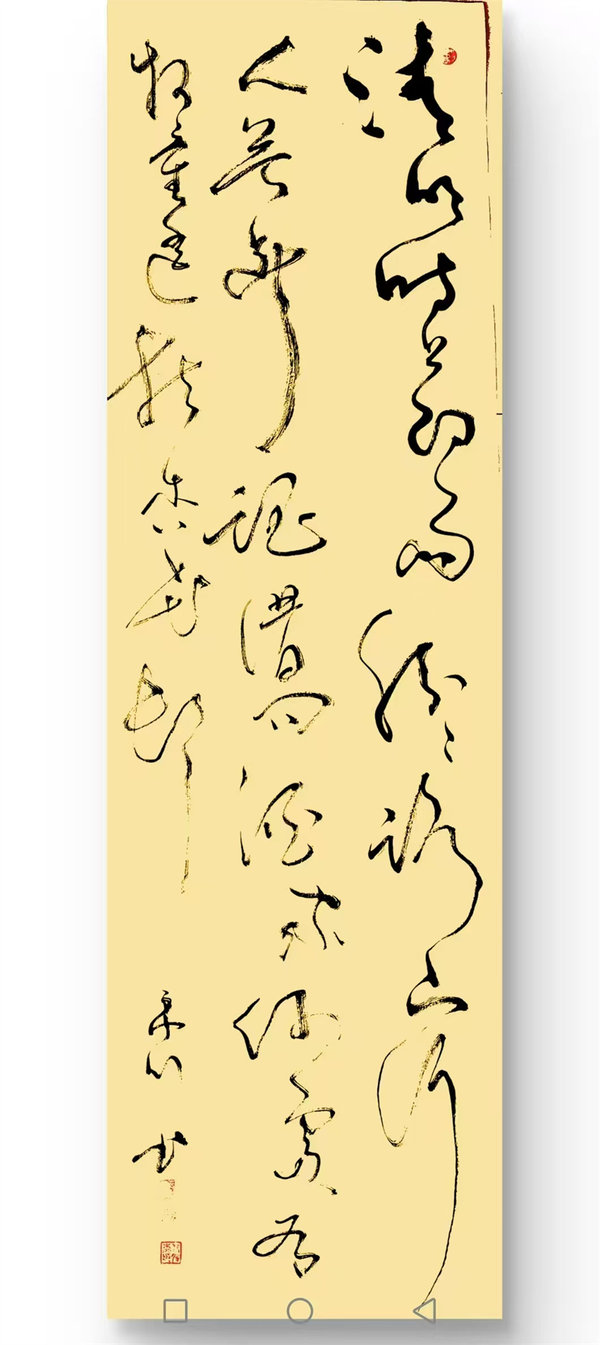 清明时节雨纷纷路上行
人欲断魂借问酒家何处有
牧童遥指杏花村
书